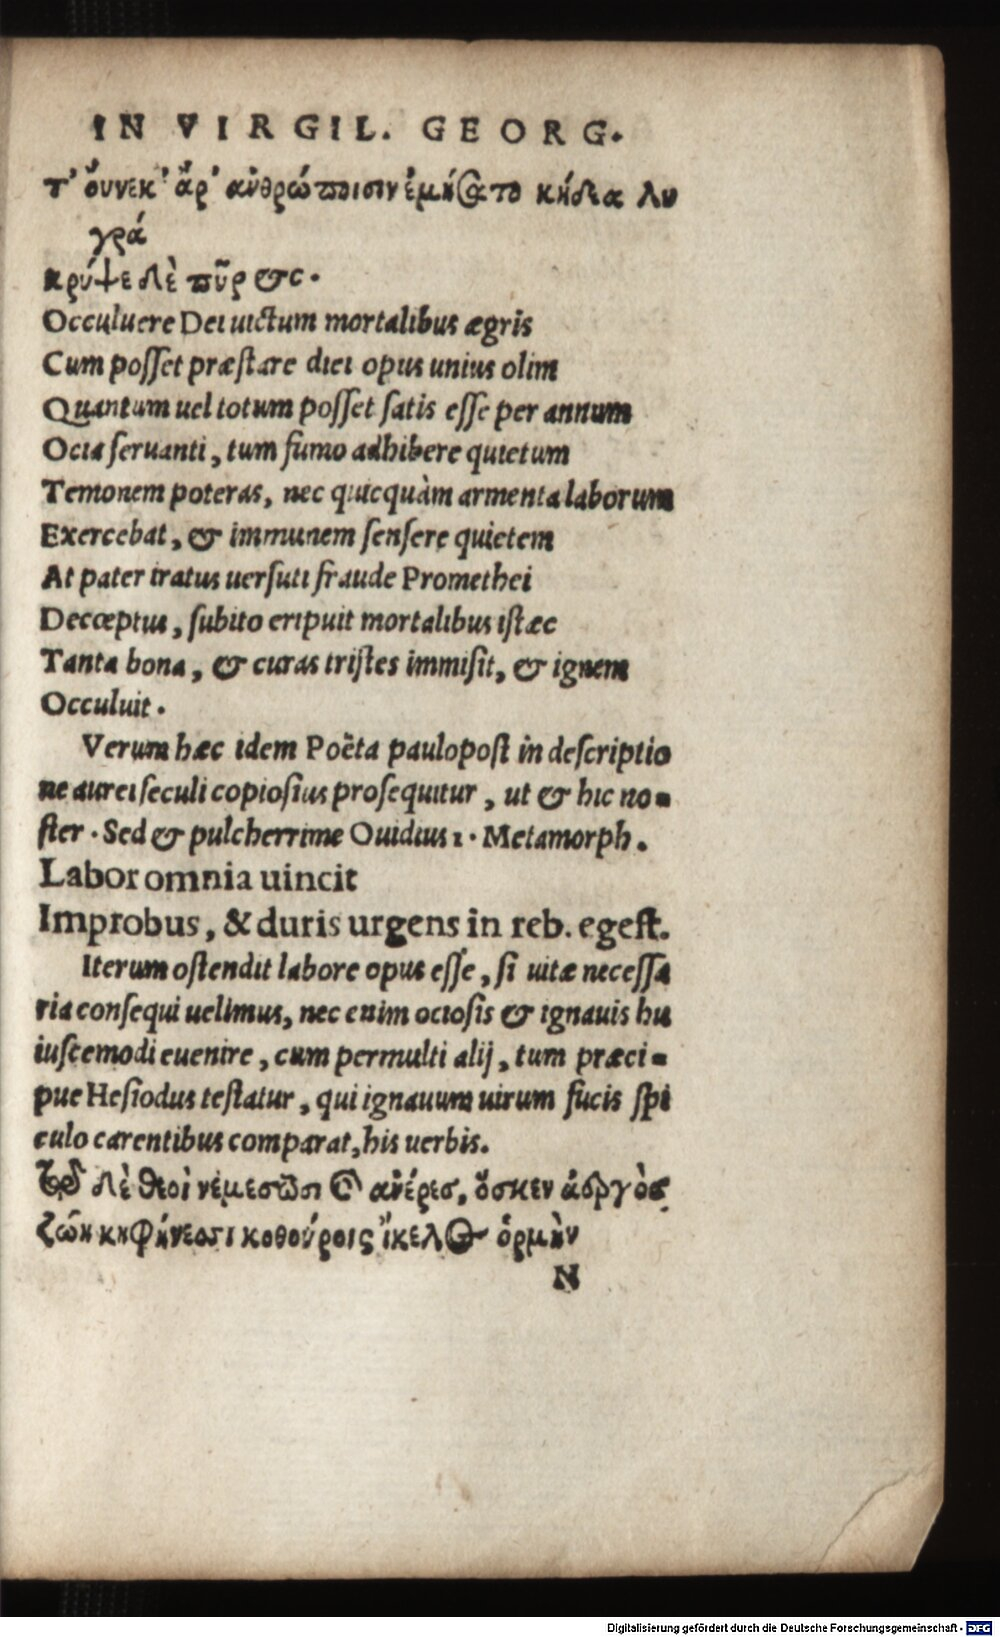 IN VIRGIL. GEORG.
τ' οὔνεκ' ἄρ' ἀνθρώποισιν ἐμήσατο κήδεα λυ
γρά
κρύψε δὲ πῦρ &c.
Occuluere Dei uictum mortalibus ægris
Cum posset præstare diei opus unius olim
Quantum uel totum posset satis esse per annum
Ocia seruanti, tum fumo adhibere quietum
Temonem poteras, nec quicquàm armenta laborum
Exercebat, & immunem sensere quietem
At pater iratus uersuti fraude Promethei
Decœptus, subito eripuit mortalibus istæc
Tanta bona, & curas tristes immisit, & ignem
Occuluit.
Verum hæc idem Poëta paulopost in descriptio
ne aurei seculi copiosius prosequitur, ut & hic no-
ster. Sed & pulcherrime Ouidius 1. Metamorph.
Labor omnia uincit
Improbus, & duris urgens in reb. egest.
Iterum ostendit labore opus esse, si uitæ necessa
ria consequi uelimus, nec enim ociosis & ignauis hu
iuscemodi euenire, cum permulti alij, tum præci-
pue Hesiodus testatur, qui ignauum uirum fucis spi
culo carentibus comparat, his uerbis.
τῷ δὲ θεοὶ νεμεσῶσι καὶ ἀνέρες, ὅσκεν ἀεργὸς
ζώῃ κηφήνεσσι κοθούροις ἴκελος ὁρμὴν
N
Digitalisierung gefördert durch die Deutsche Forschungsgemeinschaft - DFG